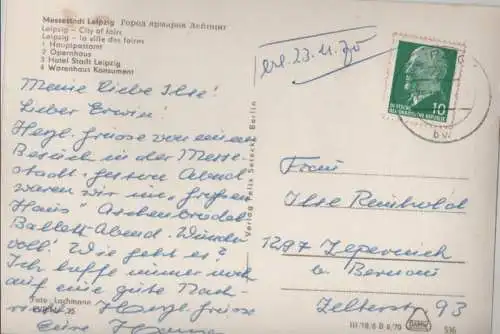 Messestadt Leipzig Город ярмарки Лейпциг
Leipzig — City of fairs
Leipzig — la ville des foires
1 Hauptpostamt
2 Opernhaus
3 Hotel Stadt Leipzig
4 Warenhaus Konsument
Meine liebe Ilse!
Lieber Erwin!
Herzl. Grüsse von einem
Besuch in der Messe-
stadt. gestern Abend
waren wir im "großen
Haus" Aschenbrödel
Ballett-Abend. Wunder
voll! Wie geht es?
Ich hoffe immer noch
auf eine gute Nach-
richt. Herzl. Grüsse
Deine
Foto: Lachmann
Verlag Felix Setecki Berlin
erl. 23. 11. 70
10
DEUTSCHE
DEMOKRATISCHE REPUBLIK
Frau
Ilse Reinhold
1297 Zepernick
b. Bernau
93
III/18/6 B 6/70
516